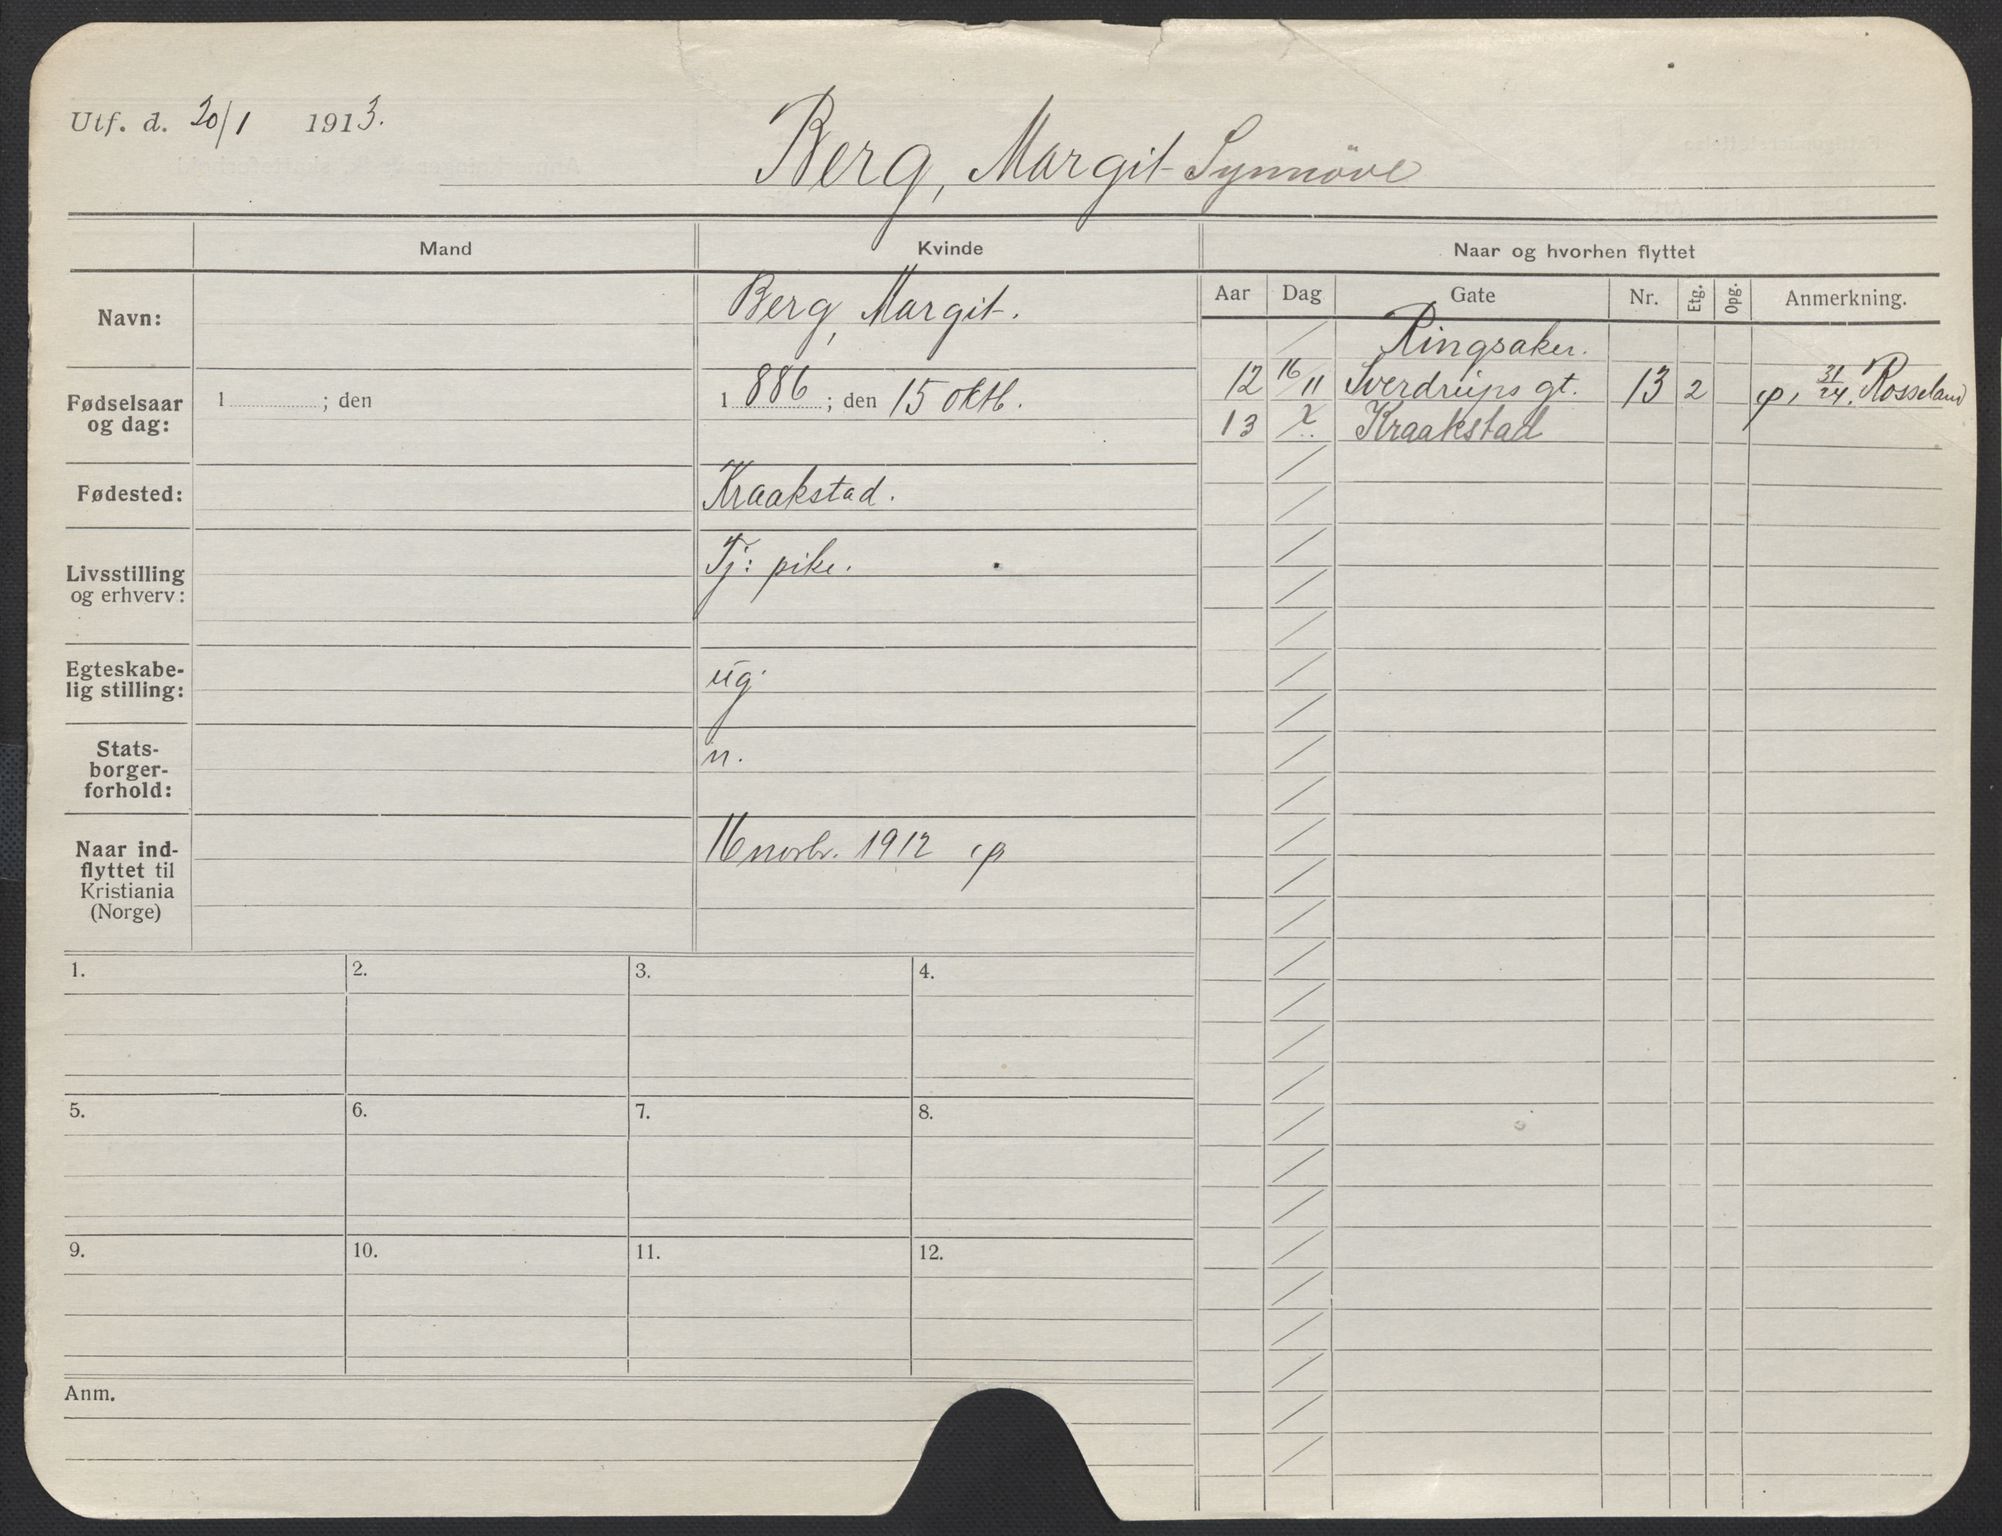 Utf. d. 20/1 1913.
Berg, Margit Synnöve
Mand Kvinde Naar og hvorhen flyttet
Aar Dag Gate Nr. Etg. Opg. Anmerkning.
Navn: Berg, Margit.
Ringsaker.
Fødselsaar og dag: 1 ; den 1 886 ; den 15 oktb.
12 16/11 Sverdrups gt. 13 2 31/24. Rosseland
13 Kraakstad
Fødested: Kraakstad.
Livsstilling
og erhverv: Tj: pike.
Egteskabe-
lig stilling: ug.
Stats-
borger-
forhold: n.
Naar ind-
flyttet til
Kristiania
(Norge) 16 novbr. 1912
1. 2. 3. 4.
5. 6. 7. 8.
9. 10. 11. 12.
Anm.